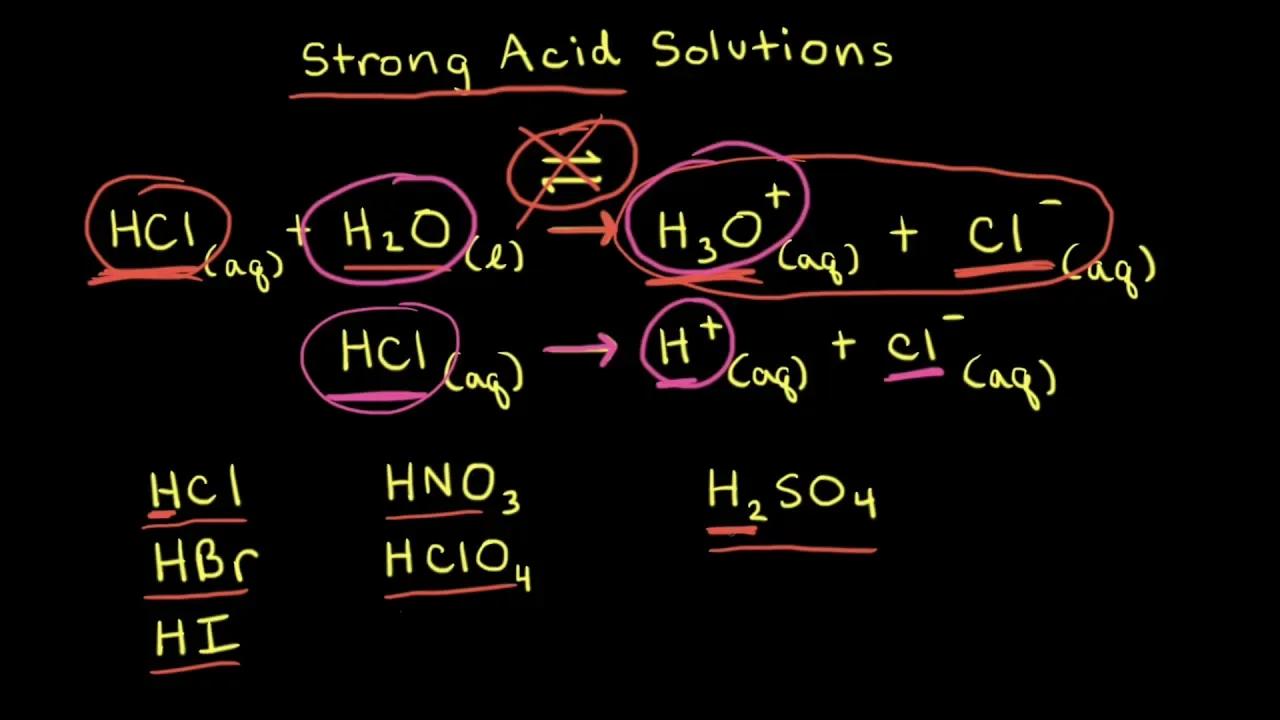 Strong Acid Solutions
⇌
HCl(aq) + H₂O(l) → H₃O⁺(aq) + Cl⁻(aq)
HCl(aq) → H⁺(aq) + Cl⁻(aq)
HCl HNO₃ H₂SO₄
HBr HClO₄
HI